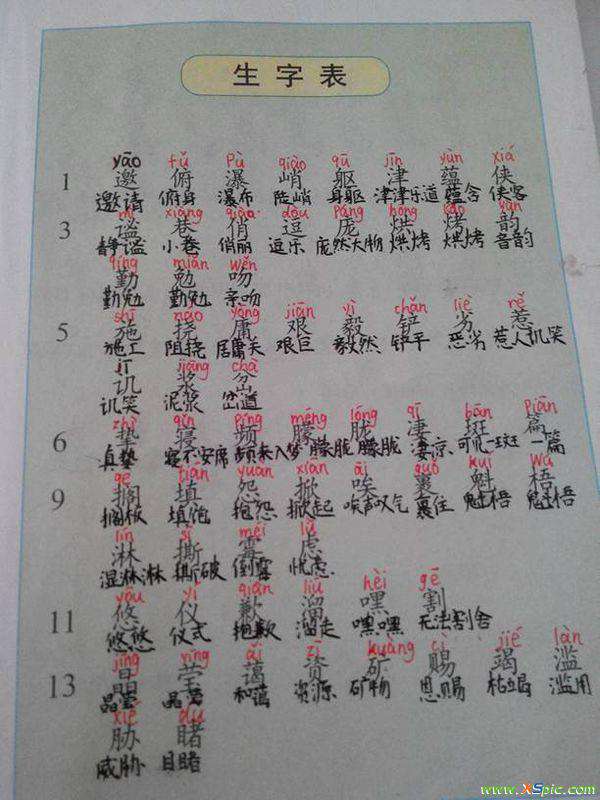 生字表
yāo fǔ pù qiào qū jīn yùn xiá
1 邀 俯 瀑 峭 躯 津 蕴 侠
邀请 俯身 瀑布 陡峭 身躯 津津乐道 蕴含 侠客
mì xiàng qiào dòu páng hōng kǎo yùn
3 谧 巷 俏 逗 庞 烘 烤 韵
静谧 小巷 俏丽 逗乐 庞然大物 烘烤 烘烤 音韵
qíng miǎn wěn
勤 勉 吻
勤勉 勤勉 亲吻
shī náo yōng jiān yì chǎn liè rě
5 施 挠 庸 艰 毅 铲 劣 惹
施工 阻挠 居庸关 艰巨 毅然 铲平 恶劣 惹人讥笑
jī jiāng chà
讥 浆 岔
讥笑 泥浆 岔道
zhì qǐn pín méng lóng qī bān piān
6 挚 寝 频 朦 胧 凄 斑 篇
真挚 寝不安席 频来入梦 朦胧 朦胧 凄凉 可见一斑 一篇
gē tián yuàn xiān āi guǒ kuí wú
9 搁 填 怨 掀 唉 裹 魁 梧
搁板 填饱 抱怨 掀起 唉声叹气 裹住 魁梧 魁梧
lín sī méi lǜ
淋 撕 霉 虑
湿淋淋 撕破 倒霉 忧虑
yōu yí qiàn liū hēi gē
11 悠 仪 歉 溜 嘿 割
悠悠 仪式 抱歉 溜走 嘿嘿 无法割舍
jīng yíng ǎi zī kuàng cì jié làn
13 晶 莹 蔼 资 矿 赐 竭 滥
晶莹 和蔼 资源 矿物 恩赐 枯竭 滥用
xié dǔ
胁 睹
威胁 目睹
www.XSpic.com